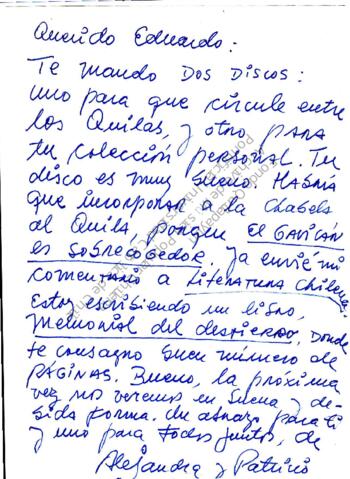 Querido Eduardo:
Te mando DOS DISCOS:
uno para que circule entre
los Quilas, y otro, PARA
tu colección personal. Tu
disco es muy bueno. HABRIA
que incorporar a la Chabela
al Quila, porque EL GAVILÁN
ES SOBRECOGEDOR. Ya envié mi
comentario a Literatura Chilena.
Estoy escribiendo un libro,
MEMORIAL del destierro, DONDE
te consagro buen número de
PÁGINAS. Bueno, la próxima
vez nos veremos en buena y de-
bida forma. Un abrazo para ti
y uno para todos juntos, de
Alejandra y Patricio